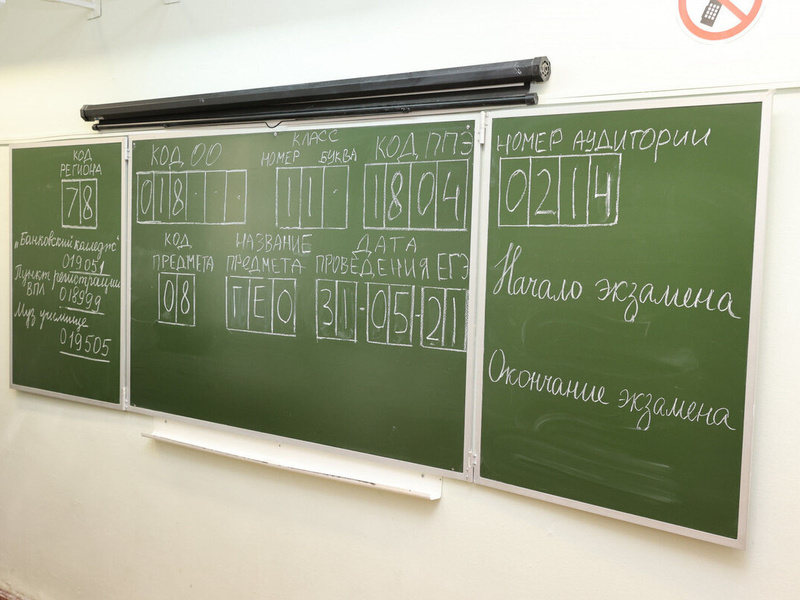 КОД
РЕГИОНА
78
„Банковский колледж"
019051
Пункт регистрации
ВПЛ 018999
Муз училище
019505
КОД ОО
018...
КЛАСС
НОМЕР БУКВА
11.
КОД ППЭ
1804
КОД
ПРЕДМЕТА
08
НАЗВАНИЕ
ПРЕДМЕТА
ГЕО
ДАТА
ПРОВЕДЕНИЯ ЕГЭ
31-05-21
НОМЕР АУДИТОРИИ
0214
Начало экзамена
Окончание экзамена